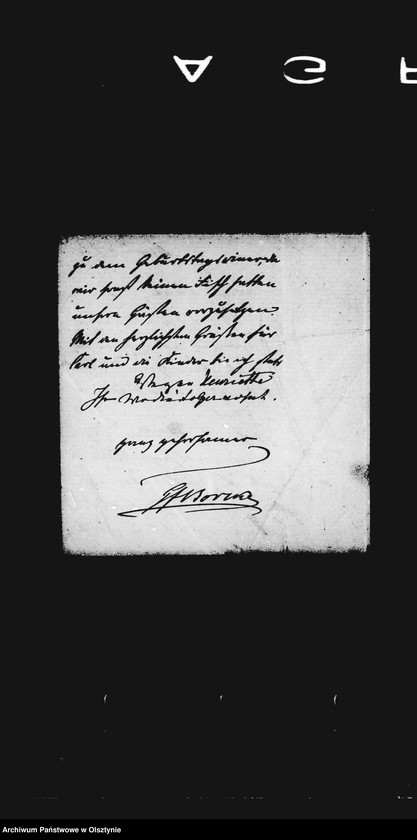 A G R
zu dem Geburtstagsdiner da
wir sonst keinen Fisch hatten
unsren Gästen vorzusetzen.
Mit den herzlichsten Grüßen für
Carl und die Kinder bin ich stets
Ihr
ganz gehorsamer
Archiwum Państwowe w Olsztynie